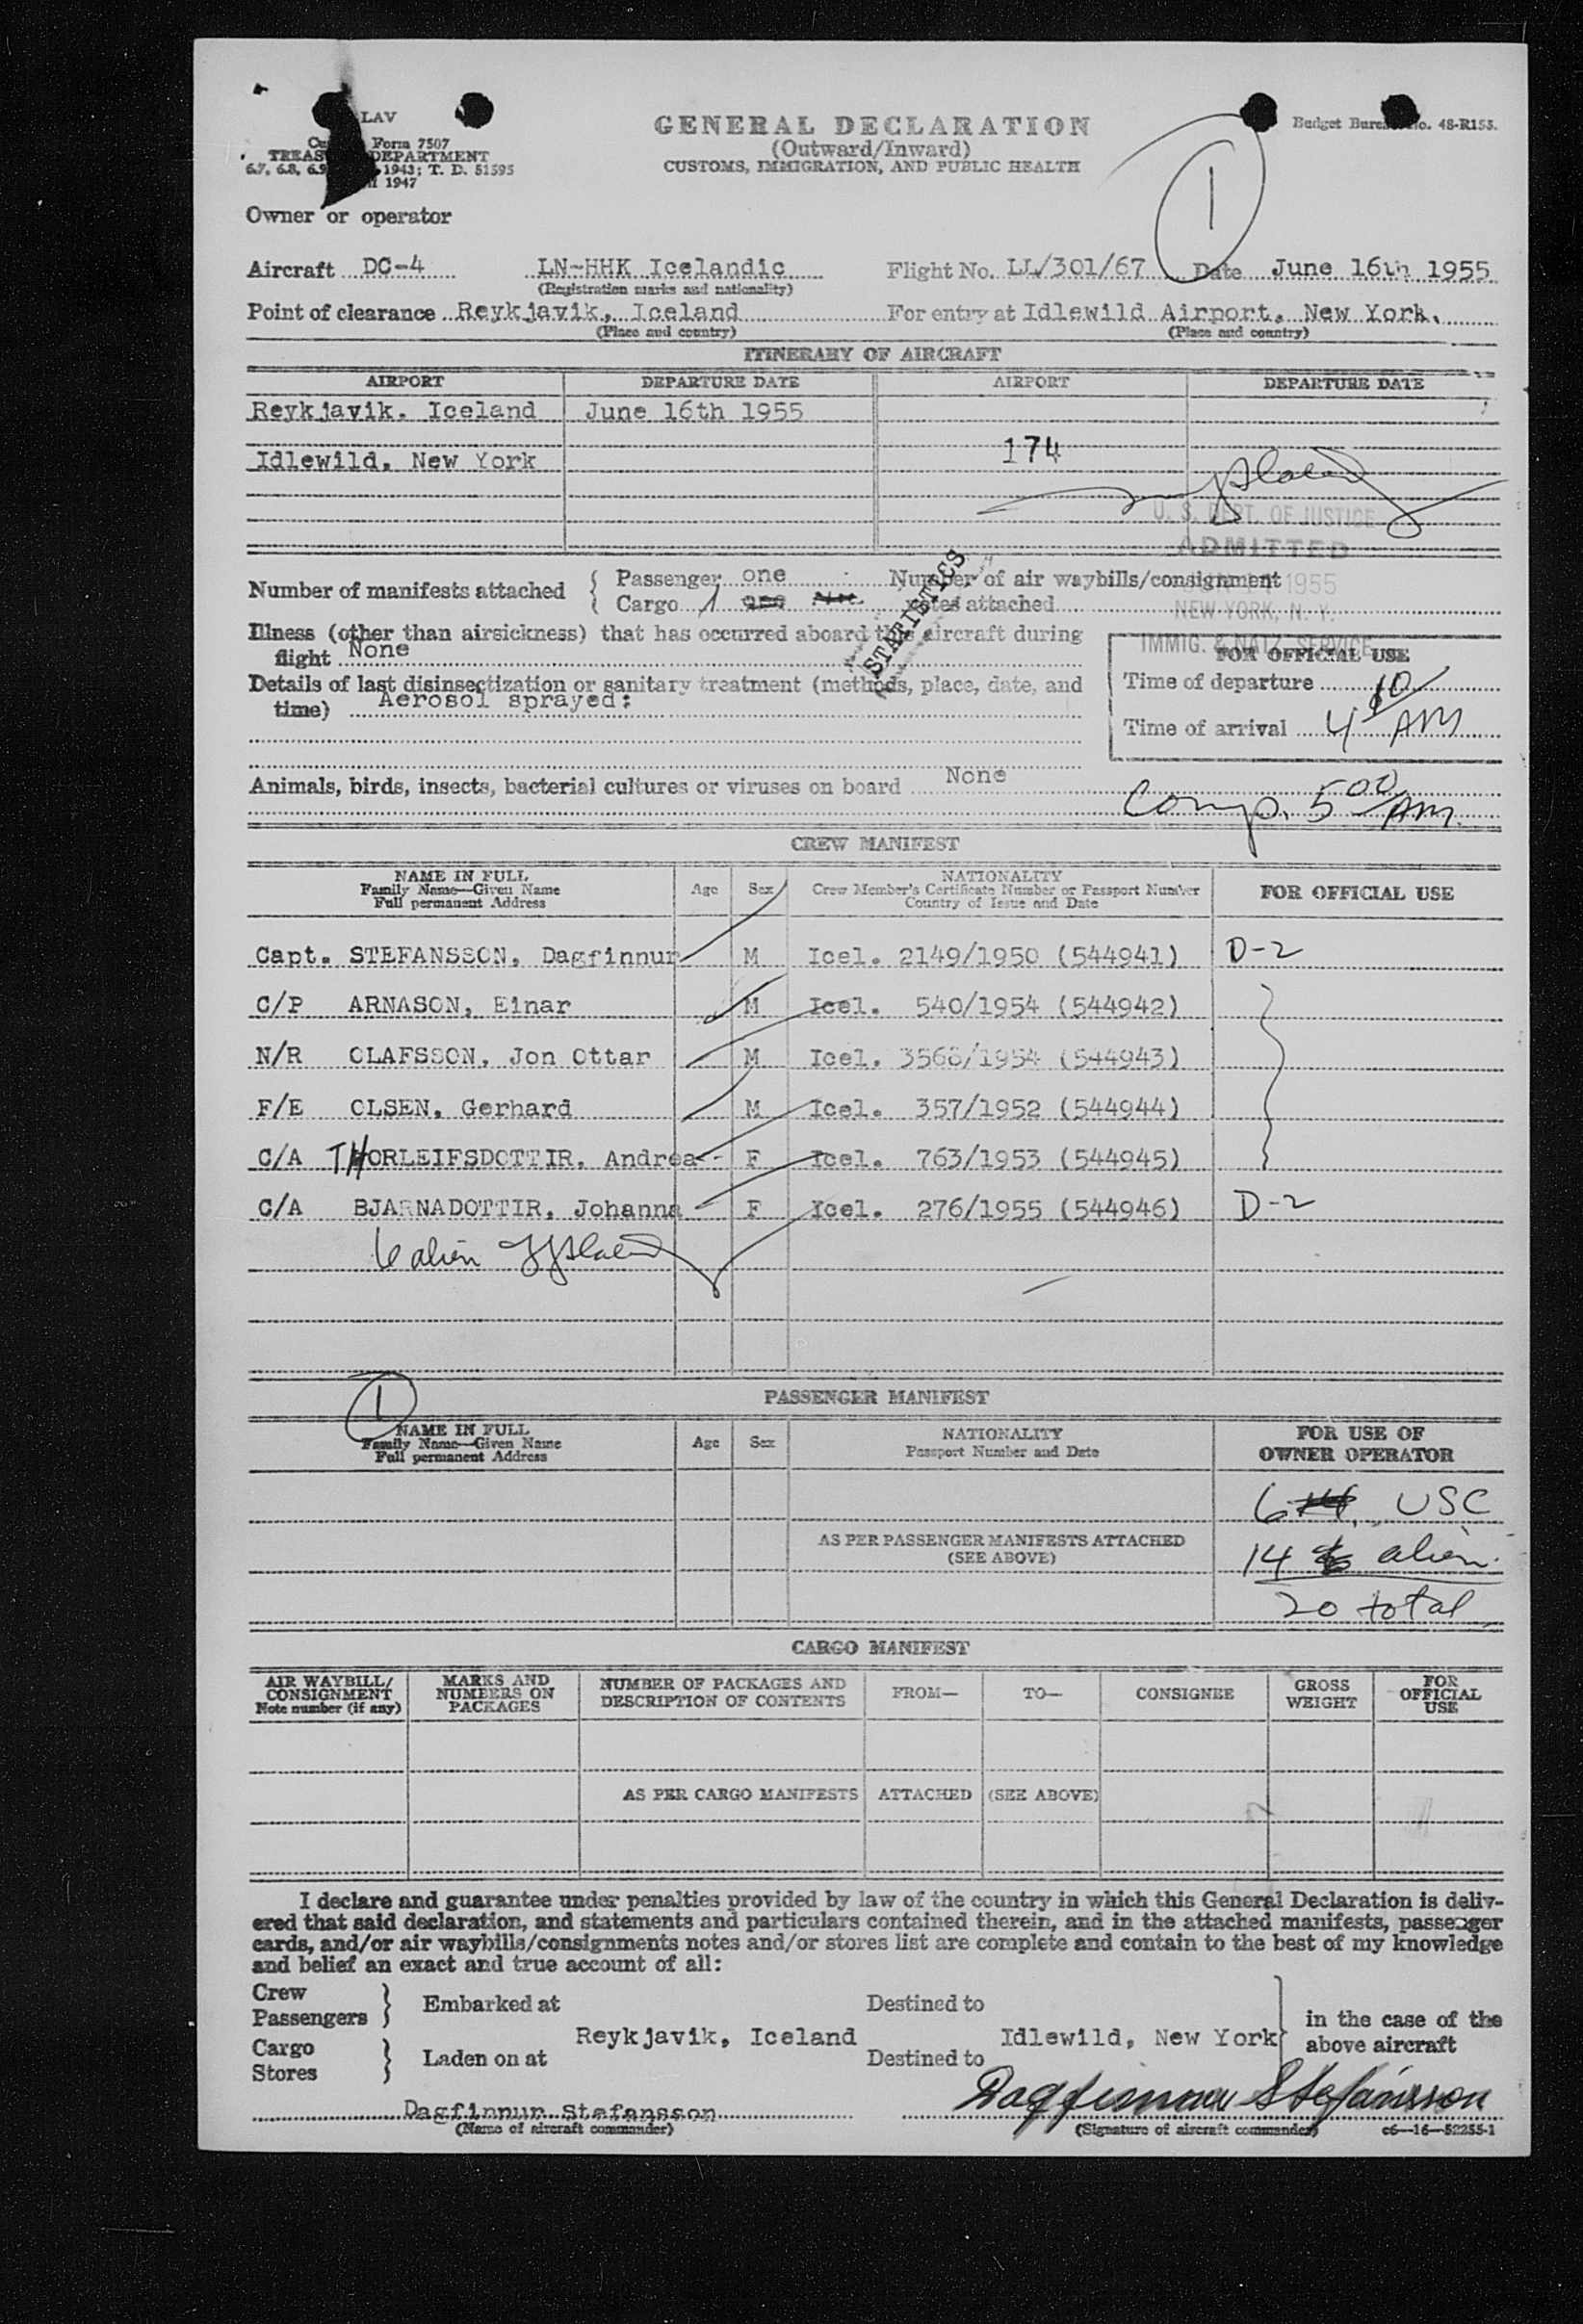 LAV
Form 7507
TREAS DEPARTMENT
6.7, 6.8, 6.9 1943; T. D. 51595
1947
GENERAL DECLARATION
(Outward/Inward)
CUSTOMS, IMMIGRATION, AND PUBLIC HEALTH
Budget Bureau No. 48-R155.
1
Owner or operator
Aircraft DC-4 LN-HHK Icelandic Flight No. LL/301/67 Date June 16th 1955
(Registration marks and nationality)
Point of clearance Reykjavik, Iceland For entry at Idlewild Airport, New York.
(Place and country) (Place and country)
ITINERARY OF AIRCRAFT
AIRPORT DEPARTURE DATE AIRPORT DEPARTURE DATE
Reykjavik. Iceland June 16th 1955
174
Idlewild, New York
U. S. DEPT. OF JUSTICE
ADMITTED
1955
NEW YORK, N. Y.
IMMIG. & NATZ. SERVICE
STATISTICS
Number of manifests attached { Passenger one Number of air waybills/consignment
Cargo 1 one notes attached
Illness (other than airsickness) that has occurred aboard this aircraft during
flight None
FOR OFFICIAL USE
Details of last disinsectization or sanitary treatment (methods, place, date, and
time) Aerosol sprayed:
Time of departure
Time of arrival 4 10 AM
Animals, birds, insects, bacterial cultures or viruses on board None
Comp. 5 00 AM.
CREW MANIFEST
NAME IN FULL
Family Name—Given Name
Full permanent Address
Age Sex
NATIONALITY
Crew Member's Certificate Number or Passport Number
Country of Issue and Date
FOR OFFICIAL USE
Capt. STEFANSSON, Dagfinnur M Icel. 2149/1950 (544941) D-2
C/P ARNASON, Einar M Icel. 540/1954 (544942)
N/R OLAFSSON, Jon Ottar M Icel. 3568/1954 (544943)
F/E OLSEN, Gerhard M Icel. 357/1952 (544944)
C/A THORLEIFSDOTTIR, Andrea F Icel. 763/1953 (544945)
C/A BJARNADOTTIR, Johanna F Icel. 276/1955 (544946) D-2
6 alien
1
PASSENGER MANIFEST
NAME IN FULL
Family Name—Given Name
Full permanent Address
Age Sex
NATIONALITY
Passport Number and Date
FOR USE OF
OWNER OPERATOR
6 USC
AS PER PASSENGER MANIFESTS ATTACHED
(SEE ABOVE)
14 alien
20 total
CARGO MANIFEST
AIR WAYBILL/
CONSIGNMENT
Note number (if any)
MARKS AND
NUMBERS ON
PACKAGES
NUMBER OF PACKAGES AND
DESCRIPTION OF CONTENTS
FROM— TO— CONSIGNEE
GROSS
WEIGHT
FOR
OFFICIAL
USE
AS PER CARGO MANIFESTS ATTACHED (SEE ABOVE)
I declare and guarantee under penalties provided by law of the country in which this General Declaration is deliv-
ered that said declaration, and statements and particulars contained therein, and in the attached manifests, passenger
cards, and/or air waybills/consignments notes and/or stores list are complete and contain to the best of my knowledge
and belief an exact and true account of all:
Crew
Passengers } Embarked at Destined to
Reykjavik, Iceland Idlewild, New York
in the case of the
above aircraft
Cargo
Stores } Laden on at Destined to
Dagfinnur Stefansson Dagfinnur Stefánsson
(Name of aircraft commander) (Signature of aircraft commander) c6—16—52255-1